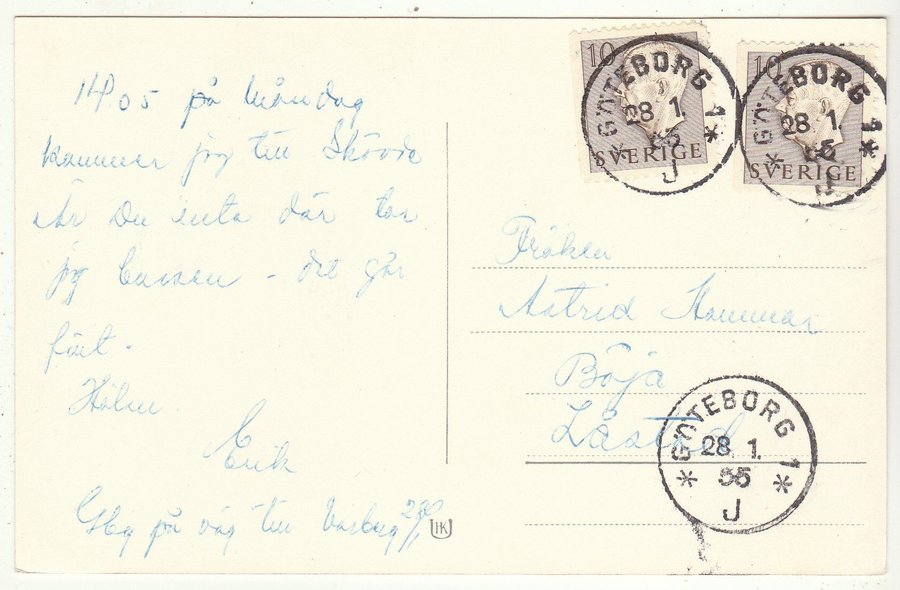 14.05 på Måndag
kommer jag till Skövde
är Du inte där tar
jag bussen - det går
fint.
Hälsn.
Erik
Gbg på väg till Varberg
HK
10
SVERIGE
GÖTEBORG 1
28 1.
55
J
10
SVERIGE
GÖTEBORG 1
28 1.
55
J
Fröken
Astrid Hammar
Böja
Låstad
GÖTEBORG 1
28 1.
55
J